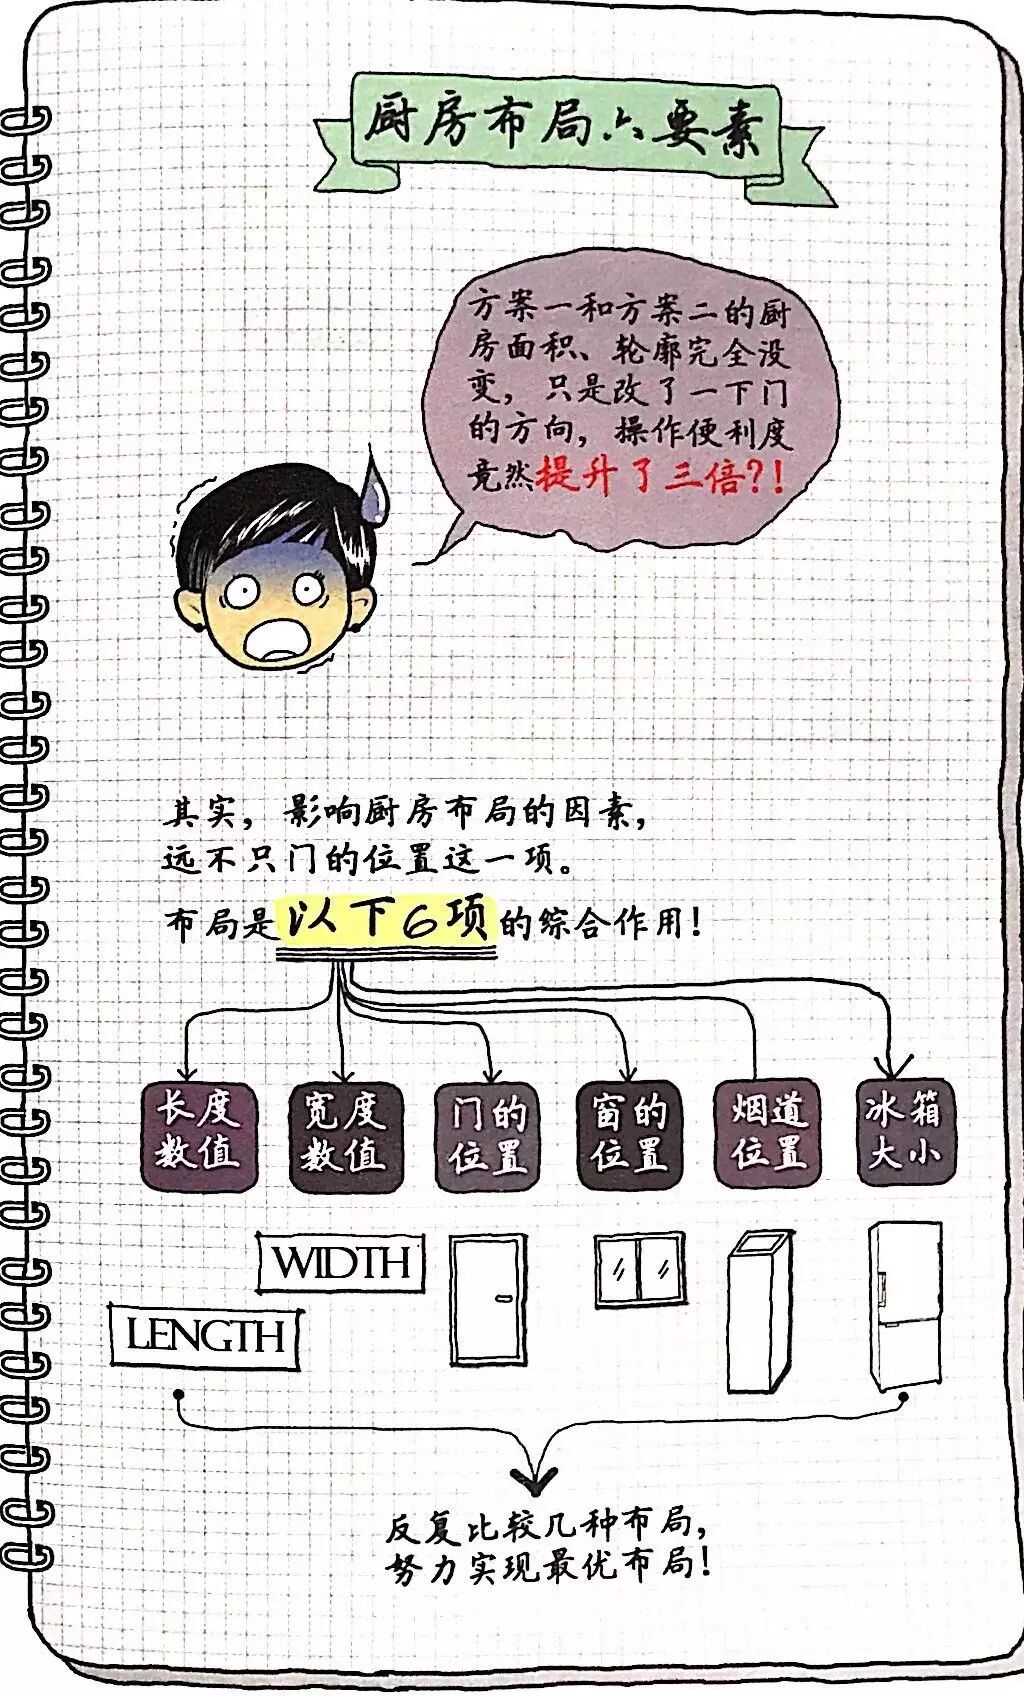 厨房布局六要素
方案一和方案二的厨
房面积、轮廓完全没
变，只是改了一下门
的方向，操作便利度
竟然提升了三倍?!
其实，影响厨房布局的因素，
远不只门的位置这一项。
布局是以下6项的综合作用！
长度
数值
宽度
数值
门的
位置
窗的
位置
烟道
位置
冰箱
大小
WIDTH
LENGTH
反复比较几种布局，
努力实现最优布局！